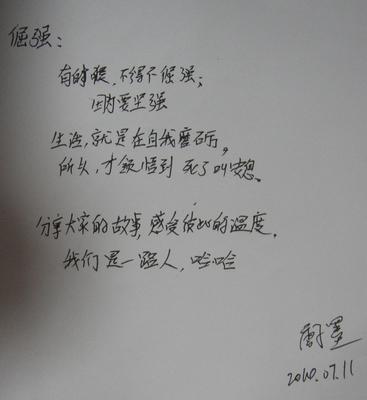 倔强：
有时候，不得不倔强；
因为要坚强
生活，就是在自我磨砺，
所以，才领悟到 死了叫安息。
分享大家的故事，感受彼此的温度。
我们是一路人，哈哈
2010.07.11